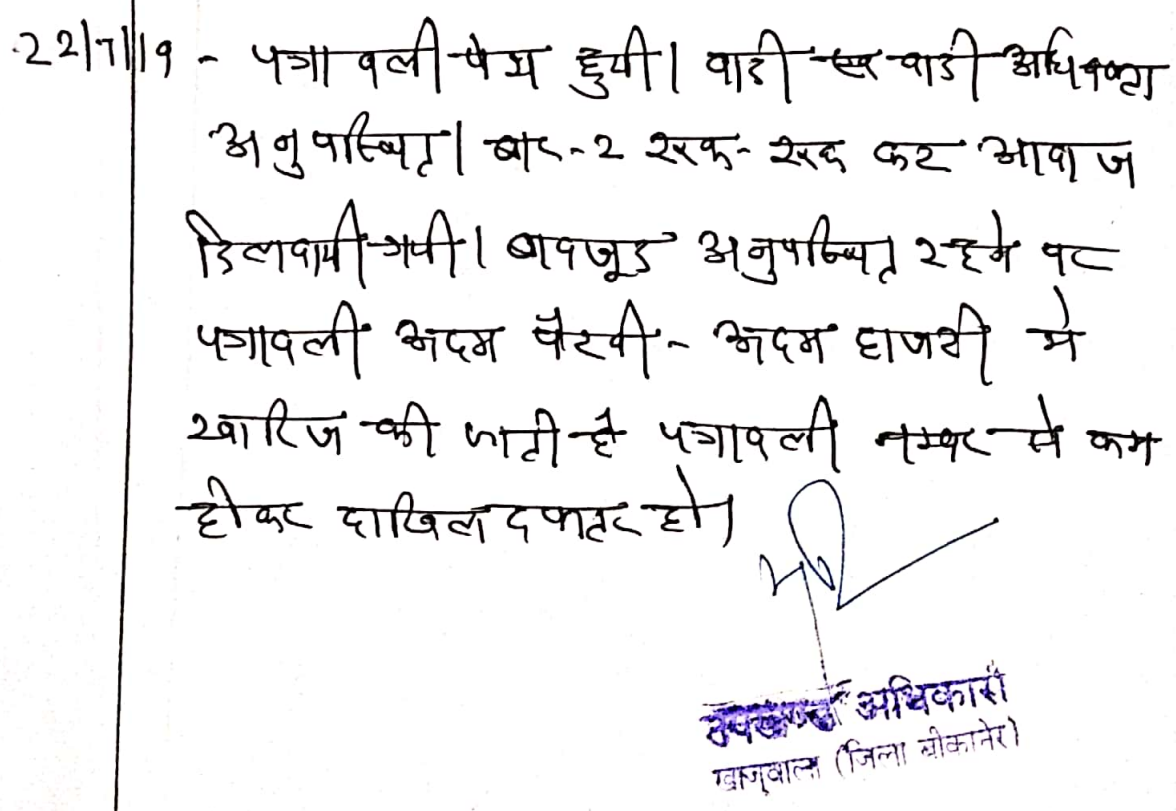 22/7/19 - पत्रावली पेश हुयी। वादी एवं वादी अधिवक्ता
अनुपस्थित। बार-2 रूक-रूक कर आवाज
दिलवायी गयी। बावजूद अनुपस्थित रहने पर
पत्रावली अदम पैरवी - अदम हाजरी मे
खारिज की जाती है पत्रावली नम्बर से कम
होकर दाखिल दफ्तर हो।
उपखण्ड अधिकारी
खाजूवाला (जिला बीकानेर)